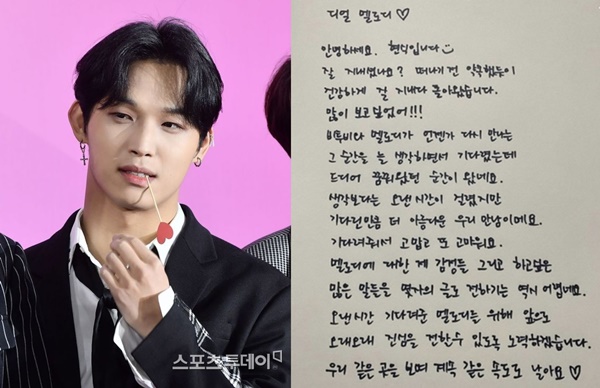 디얼 멜로디♡
안녕하세요. 현식입니다
잘 지내셨나요? 떠나기 전 약속했듯이
건강하게 잘 지내다 돌아왔습니다.
많이 보고싶었어!!!
비투비와 멜로디가 언젠가 다시 만나는
그 순간을 늘 생각하면서 기다렸는데
드디어 꿈꿔왔던 순간이 왔네요.
생각보다는 오랜시간이 걸렸지만
기다린만큼 더 아름다운 우리 만남이에요.
기다려줘서 고맙고 또 고마워요.
멜로디에 대한 제 감정들 그리고 하고싶은
많은 말들을 몇자의 글로 전하기는 역시 어렵네요.
오랜시간 기다려준 멜로디를 위해 앞으로
오래오래 진심을 전할수 있도록 노력하겠습니다.
우리 같은 곳을 보며 계속 같은 속도로 날아요♡
스포츠투데이